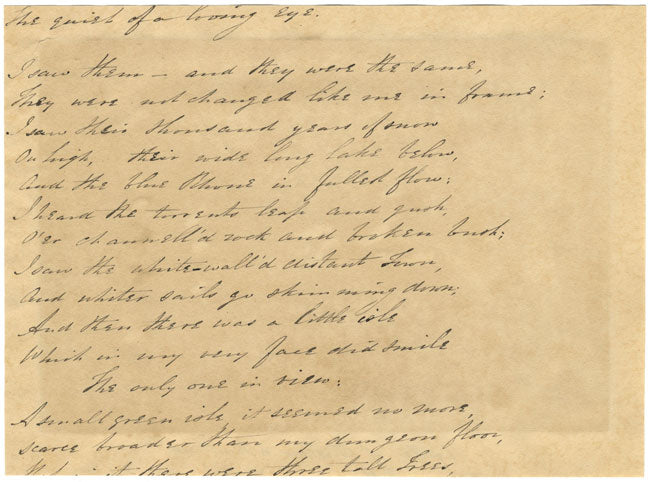 The quiet of a loving eye.
I saw them – and they were the same,
They were not changed like me in frame;
I saw their thousand years of snow
On high, their wide long lake below,
And the blue Rhone in fullest flow;
I heard the torrents leap and gush,
O'er channell'd rock and broken bush;
I saw the white-wall'd distant Town,
And whiter sails go skimming down;
And then there was a little isle
Which in my very face did smile
The only one in view;
A small green isle, it seemed no more,
scarce broader than my dungeon floor,
it there were three tall Trees,